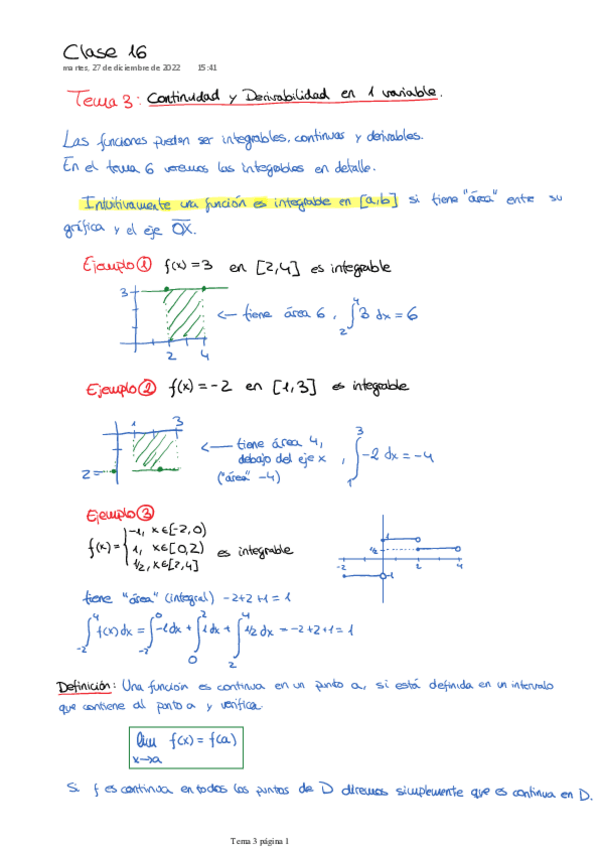 Clase 16
martes, 27 de diciembre de 2022 15:41
Tema 3: Continuidad y Derivabilidad en 1 variable.
Las funciones pueden ser integrables, continuas y derivables.
En el tema 6 veremos las integrables en detalle.
Intuitivamente una función es integrable en [a,b] si tiene "área" entre su
gráfica y el eje OX.
Ejemplo 1 f(x) = 3 en [2,4] es integrable
3
2 4
← tiene área 6, ∫₂⁴ 3 dx = 6
Ejemplo 2 f(x) = -2 en [1,3] es integrable
1 3
2
← tiene área 4,
debajo del eje x, ∫₁³ -2 dx = -4
("área" -4)
Ejemplo 3
f(x) = { -1, x∈[-2,0)
1, x∈[0,2)
1/2, x∈[2,4]
es integrable
1
1/2
-2 2 4
-1
tiene "área" (integral) -2+2+1 = 1
∫₋₂⁴ f(x) dx = ∫₋₂⁰ -1 dx + ∫₀² 1 dx + ∫₂⁴ 1/2 dx = -2+2+1 = 1
Definición: Una función es continua en un punto a, si está definida en un intervalo
que contiene al punto a y verifica
lim f(x) = f(a)
x→a
Si f es continua en todos los puntos de D diremos simplemente que es continua en D.
Tema 3 página 1